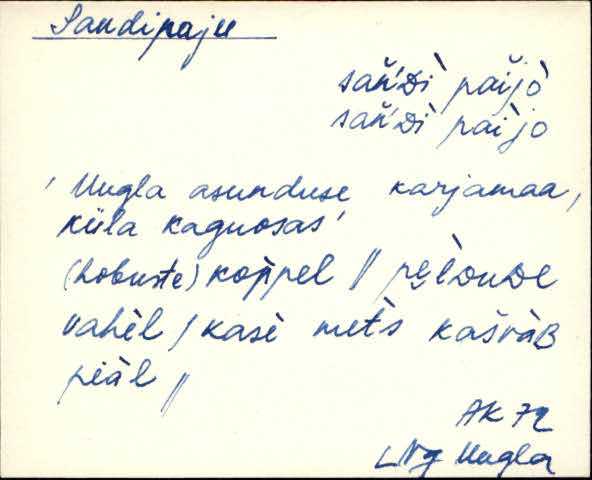 Sandipaju
sań̆Dì păijò
sań̆Dì pàìjo
' Uugla asunduse karjamaa,
küla kaguosas'
(hobuste) kop̀pel // pe̮l̀DuDe
vahèl / kasè met̀s kašvàB
piäl //
AK 72
LNg Uugla